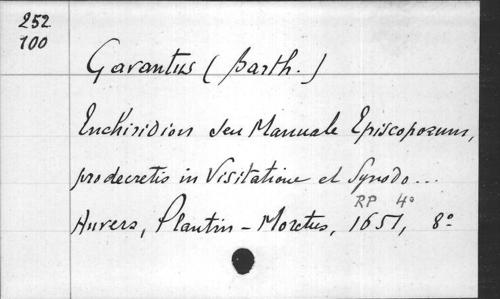 252
100
Gavantus (Barth.)
Enchiridion seu Manuale Episcoporum,
pro decretis in Visitatione et Synodo...
RP 4°
Anvers, Plantin - Moretus, 1651, 8°